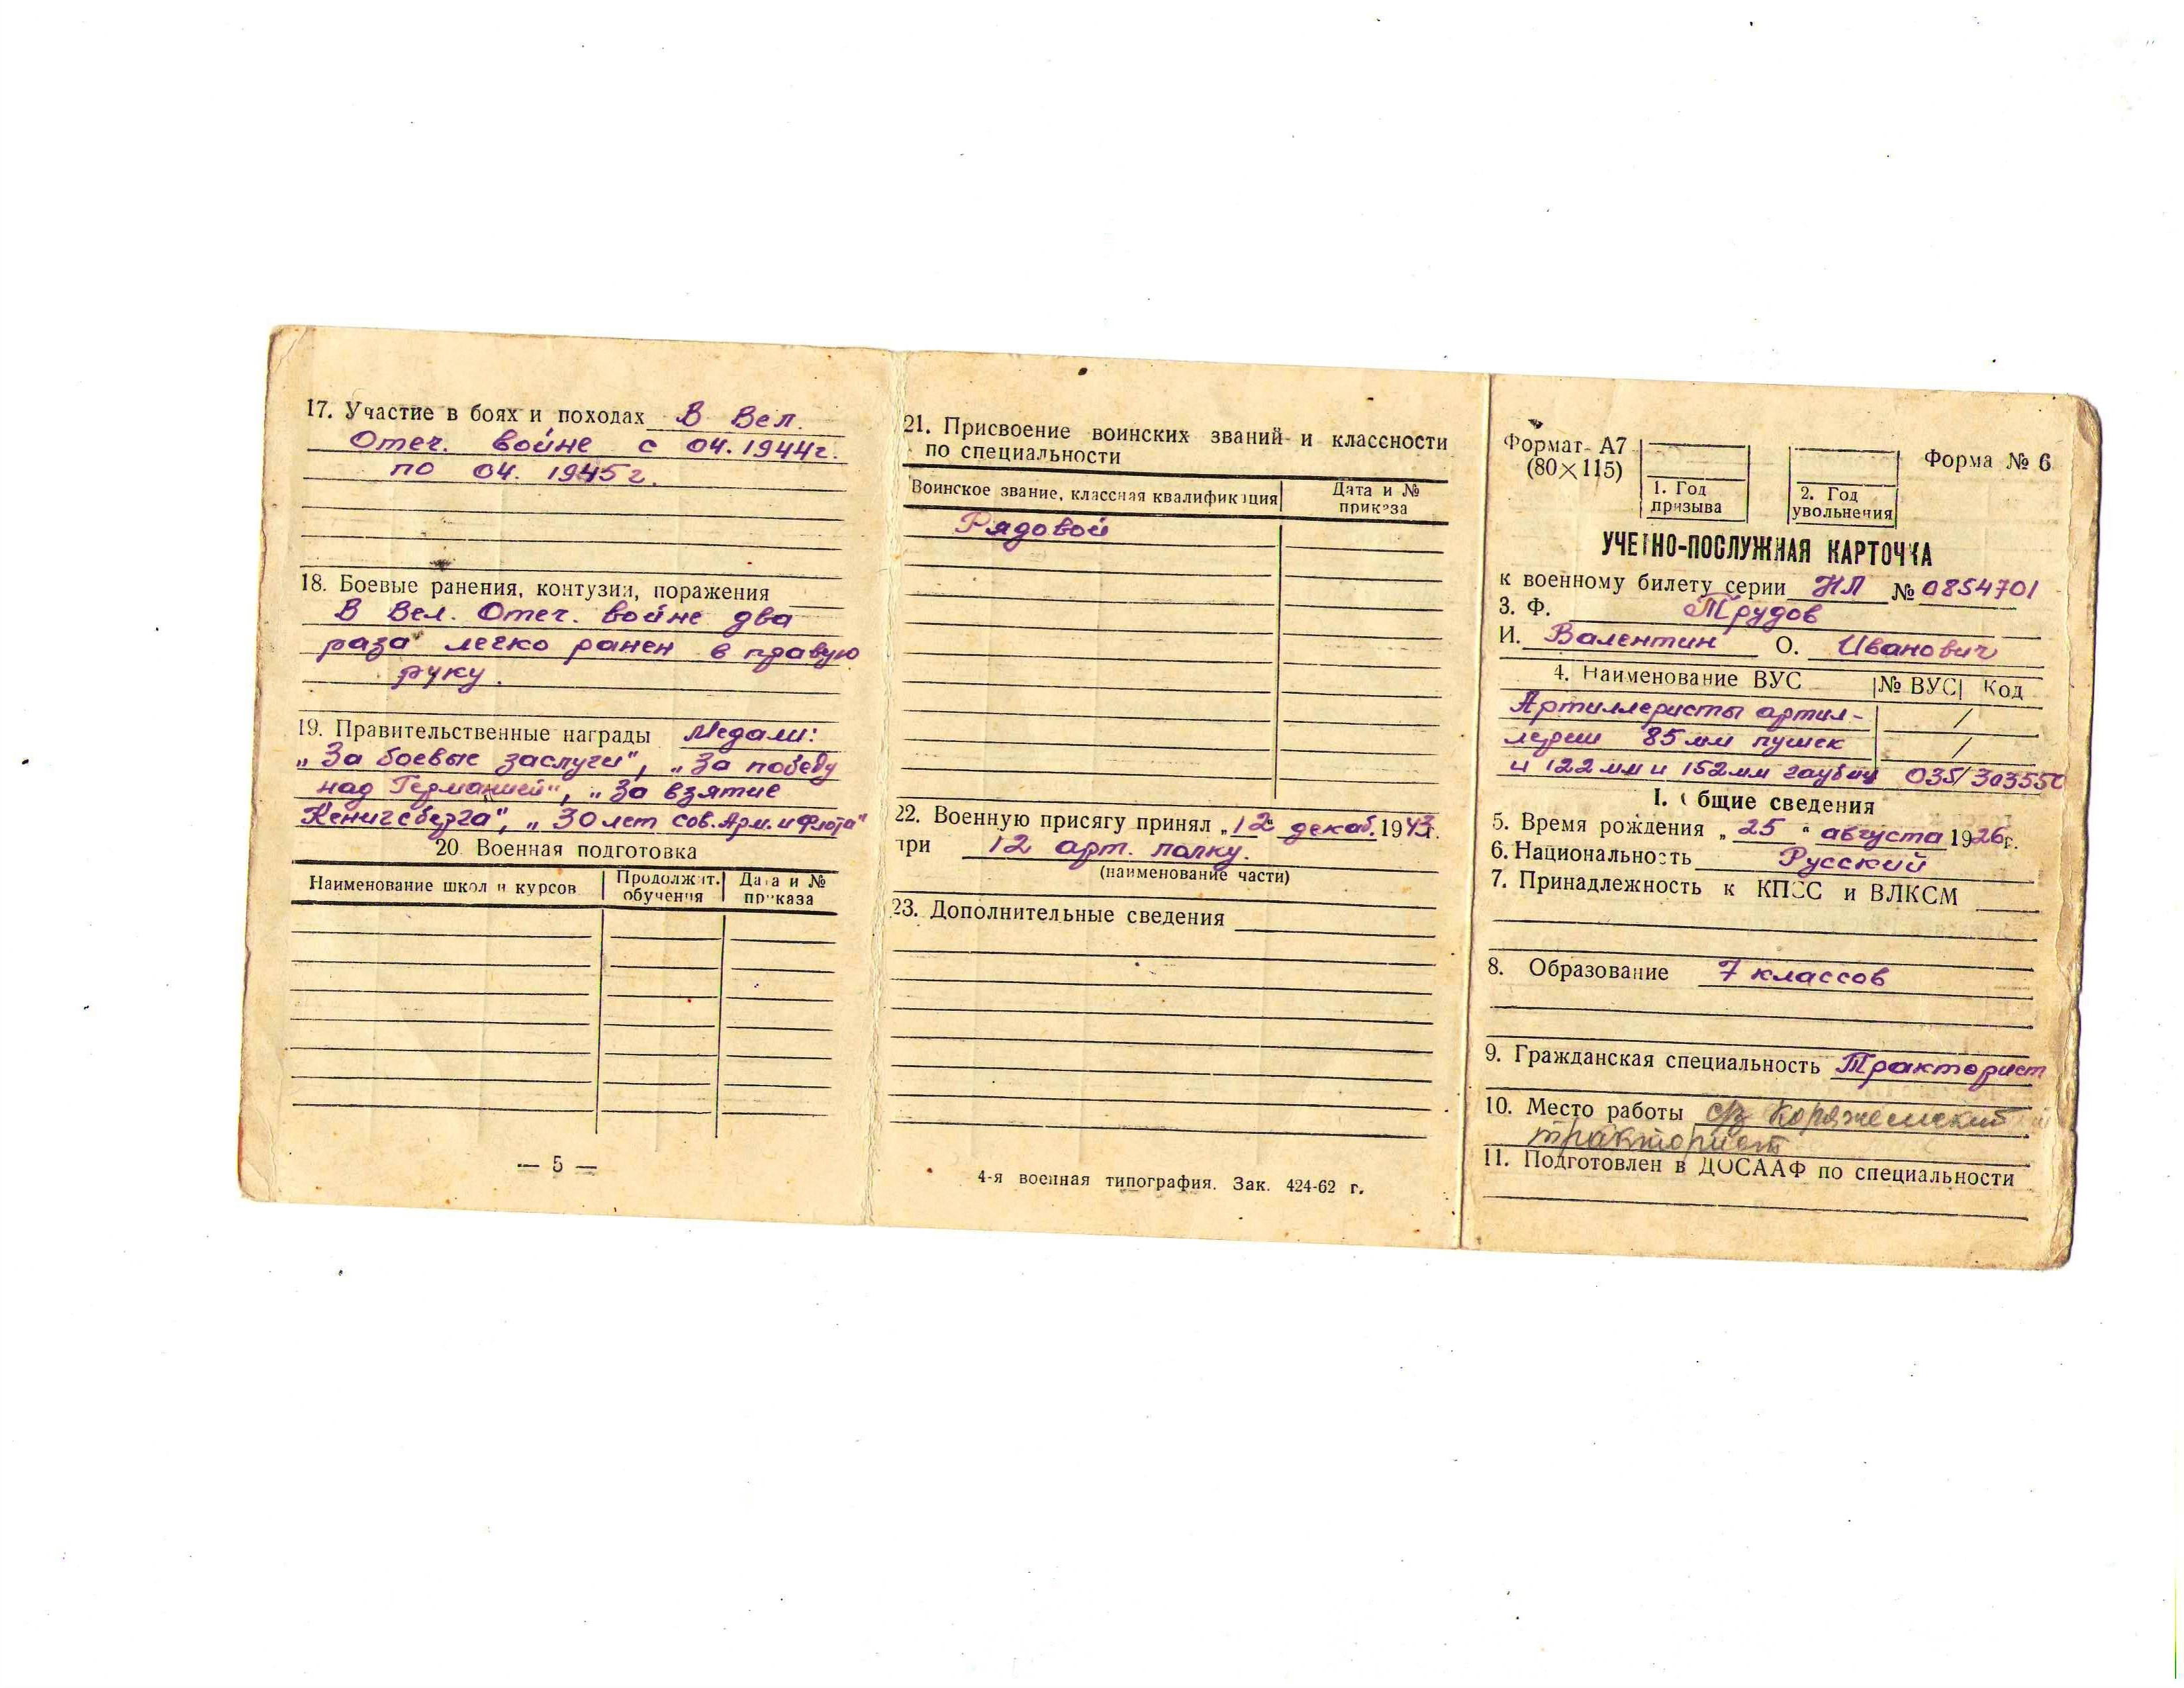 17. Участие в боях и походах В Вел.
Отеч. войне с 04.1944г.
по 04. 1945г.
18. Боевые ранения, контузии, поражения
В Вел. Отеч. войне два
раза легко ранен в правую
руку.
19. Правительственные награды Медали:
„За боевые заслуги", „За победу
над Германией", „За взятие
Кенигсберга", „30 лет сов. Арм. и Флота"
20. Военная подготовка
Наименование школ и курсов | Продолжит. обучения | Дата и № приказа
— 5 —
21. Присвоение воинских званий и классности
по специальности
Воинское звание, классная квалификация | Дата и № приказа
Рядовой
22. Военную присягу принял „12 декаб. 1943г.
при 12 арт. полку.
(наименование части)
23. Дополнительные сведения
4-я военная типография. Зак. 424-62 г.
Формат А7
(80×115)
1. Год
призыва
2. Год
увольнения
Форма № 6
УЧЕТНО-ПОСЛУЖНАЯ КАРТОЧКА
к военному билету серии НЛ № 0854701
3. Ф. Трудов
И. Валентин О. Иванович
4. Наименование ВУС | № ВУС | Код
Артиллеристы артил- /
лерии 85 мм пушек /
и 122 мм и 152 мм гаубиц 035/303550
I. Общие сведения
5. Время рождения „25" августа 1926г.
6. Национальность Русский
7. Принадлежность к КПСС и ВЛКСМ
8. Образование 7 классов
9. Гражданская специальность Тракторист
10. Место работы с/з Коряжемский
тракторист
11. Подготовлен в ДОСААФ по специальности